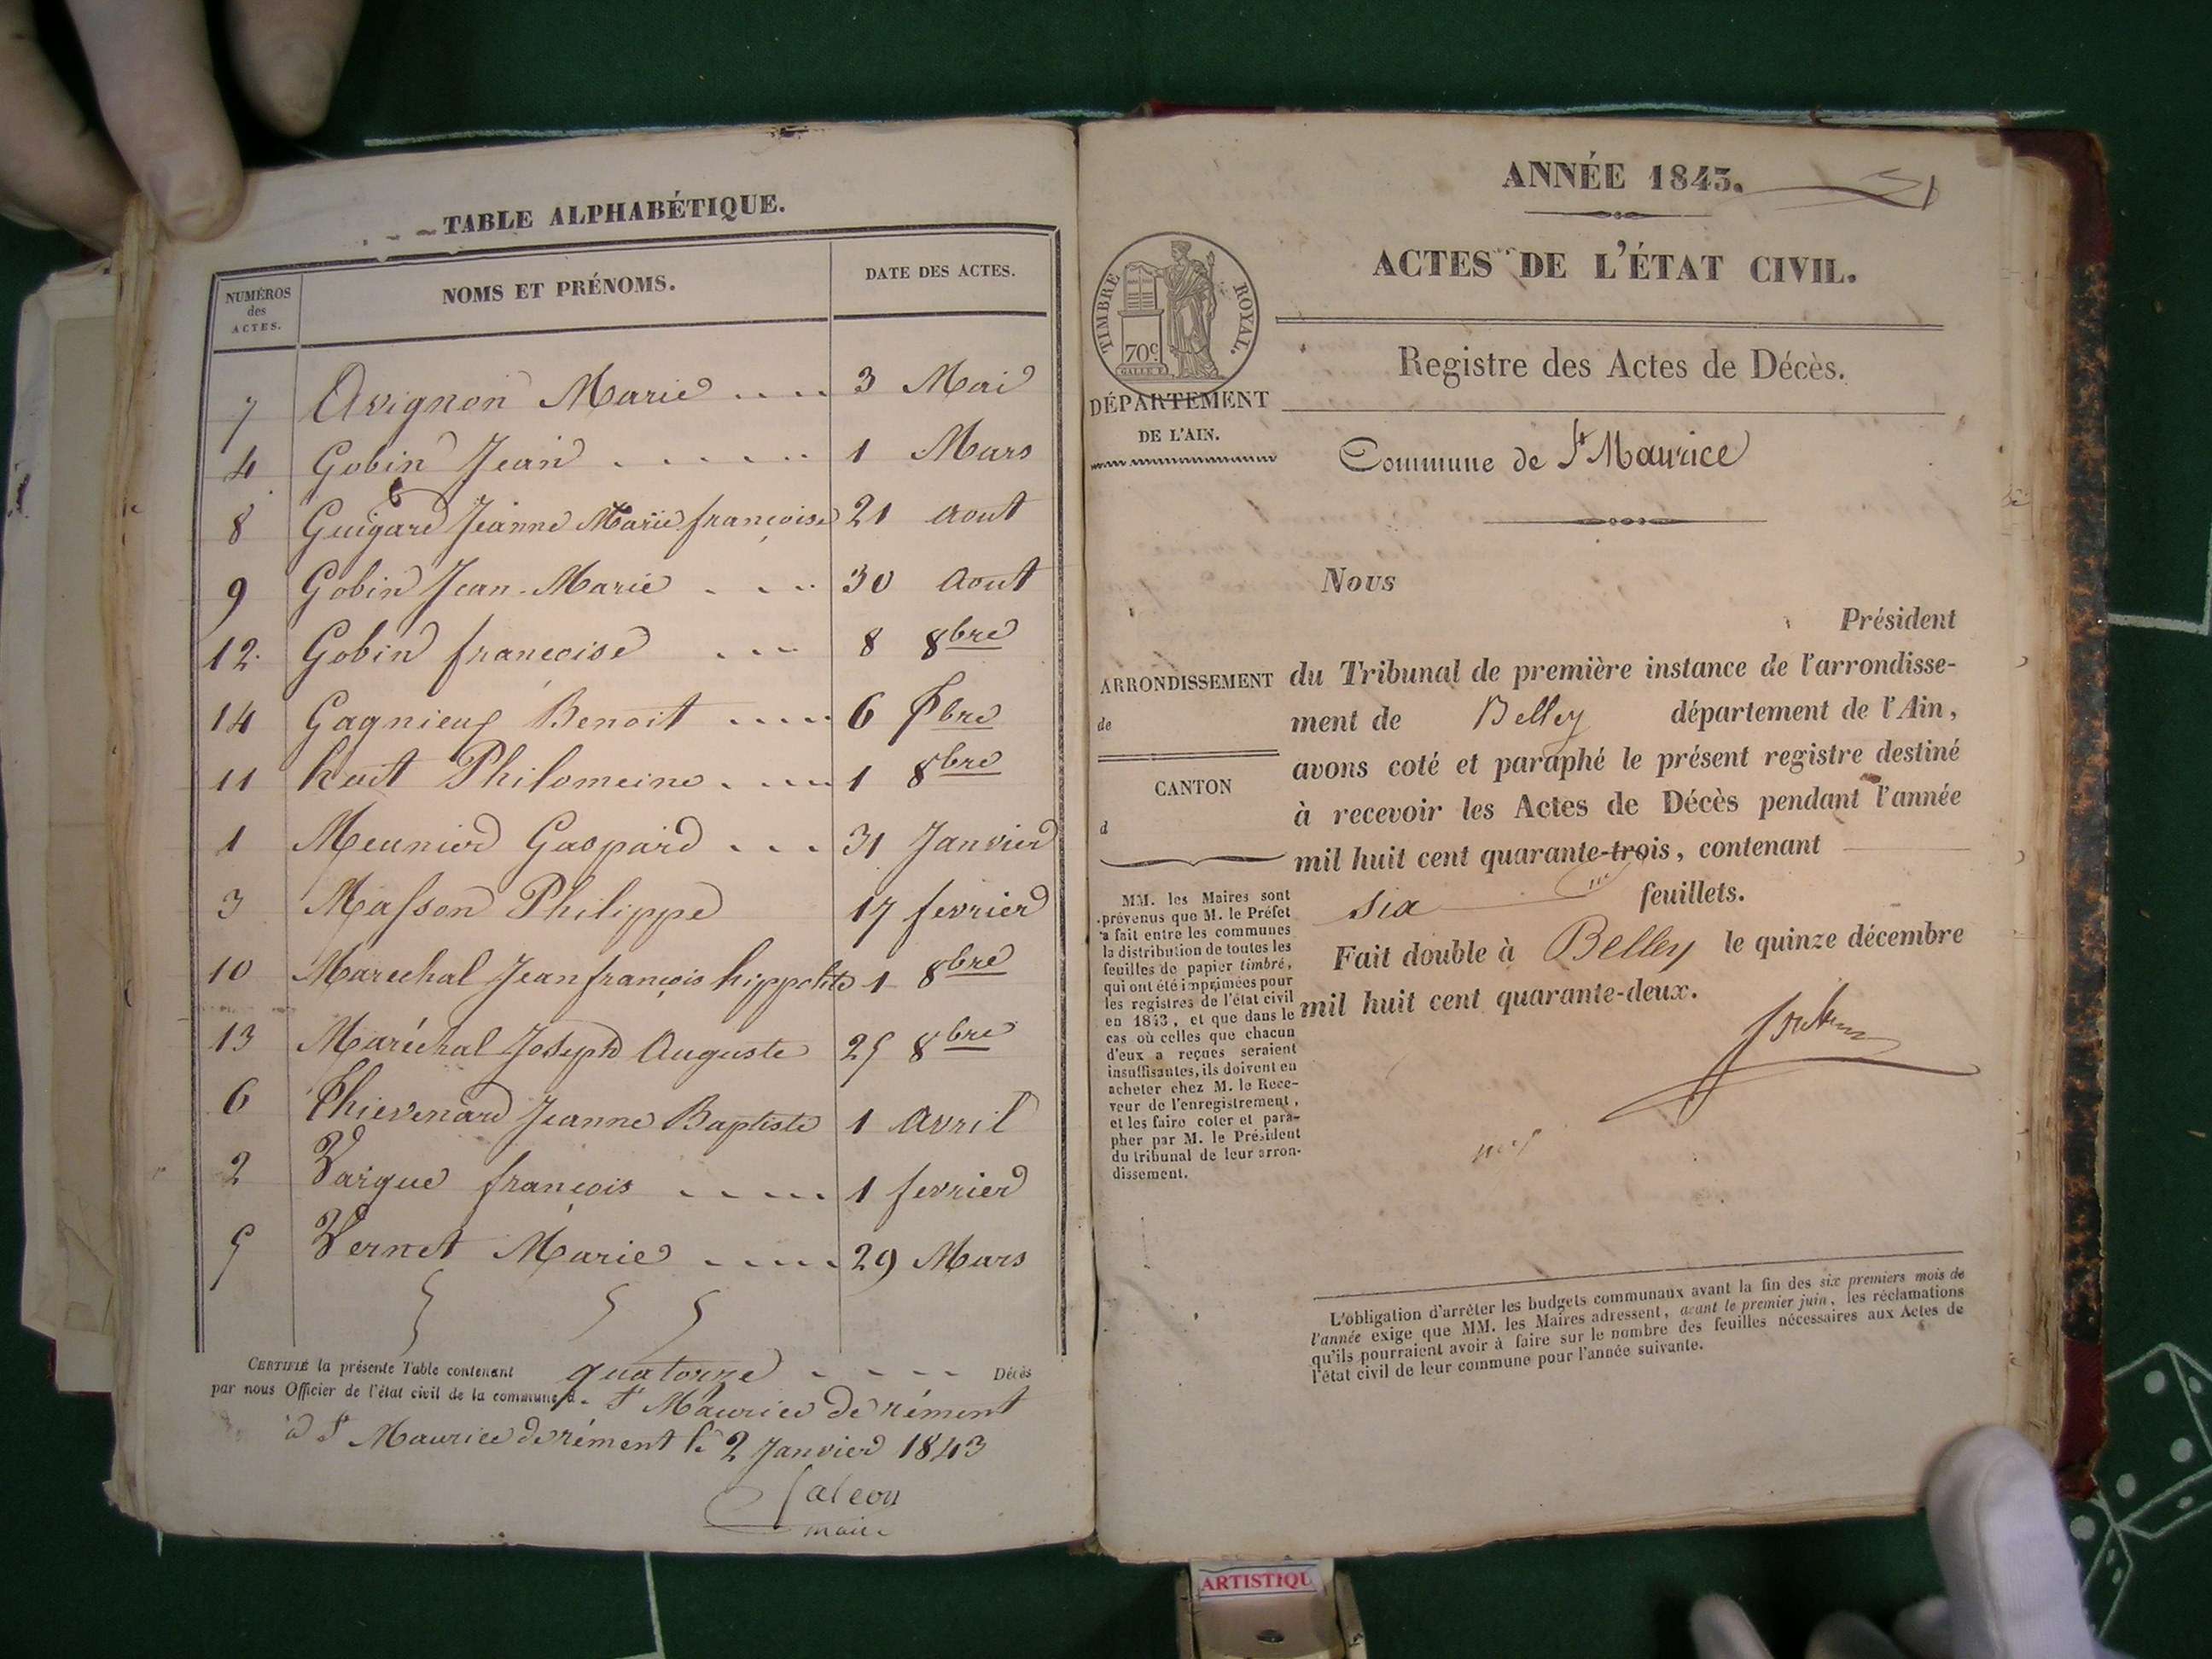 TABLE ALPHABÉTIQUE.
NUMÉROS des ACTES.
NOMS ET PRÉNOMS.
DATE DES ACTES.
7 Avignon Marie .... 3 Mai
4 Gobin Jean ...... 1 Mars
8 Guigard Jeanne Marie françoise 21 aout
9 Gobin Jean-Marie ... 30 aout
12. Gobin francoise ... 8 8bre
14 Gagnieux Benoit .... 6
11 huit Philomeine .... 1 8bre
1 Meunier Gaspard ... 31 Janvier
3 Masson Philippe 17 fevrier
10 Marechal Jean françois hippolite 1 8bre
13 Maréchal Joseph Auguste 25 8bre
6 Thievenard Jeanne Baptiste 1 avril
2 Vargue françois ..... 1 fevrier
5 Vernet Marie ..... 29 Mars
CERTIFIÉ la présente Table contenant quatorze - - - - Décès
par nous Officier de l'état civil de la commune d. St Maurice de rément
à St Maurice de rément le 2 Janvier 1843
maire
ANNÉE 1843.
ACTES DE L'ÉTAT CIVIL.
TIMBRE ROYAL.
70c
Registre des Actes de Décès.
DÉPARTEMENT
DE L'AIN.
Commune de St Maurice
Nous
Président
ARRONDISSEMENT
de
CANTON
d
du Tribunal de première instance de l'arrondisse-
ment de Belley département de l'Ain,
avons coté et paraphé le présent registre destiné
à recevoir les Actes de Décès pendant l'année
mil huit cent quarante-trois, contenant
six feuillets.
Fait double à Belley le quinze décembre
mil huit cent quarante-deux.
MM. les Maires sont
prévenus que M. le Préfet
a fait entre les communes
la distribution de toutes les
feuilles de papier timbré,
qui ont été imprimées pour
les registres de l'état civil
en 1843, et que dans le
cas où celles que chacun
d'eux a reçues seraient
insuffisantes, ils doivent en
acheter chez M. le Rece-
veur de l'enregistrement,
et les faire coter et para-
pher par M. le Président
du tribunal de leur arron-
dissement.
L'obligation d'arrêter les budgets communaux avant la fin des six premiers mois de
l'année exige que MM. les Maires adressent, avant le premier juin, les réclamations
qu'ils pourraient avoir à faire sur le nombre des feuilles nécessaires aux Actes de
l'état civil de leur commune pour l'année suivante.
ARTISTIQU